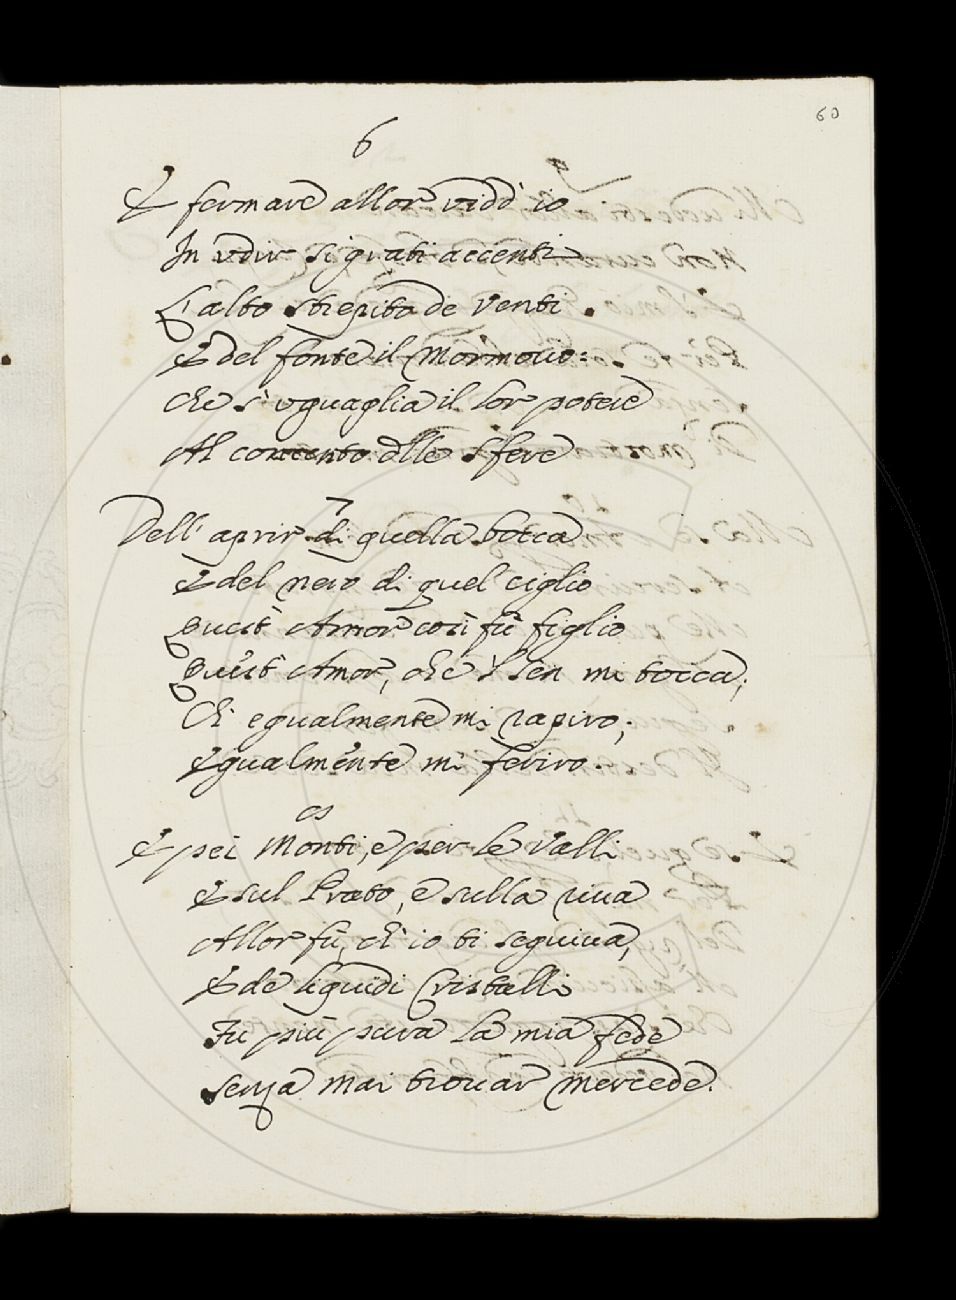 60
6
E fermare allor vidd' io
In udir si grati accenti
L'alto strepito de venti
E del fonte il mormorio:
Che s' uguaglia il lor potere
Al concento dlle sfere
7
Dell' aprir di quella bocca
E del nero di quel ciglio
Quest' Amor così fù figlio
Quest' Amor, che 'l sen mi tocca;
Ch' egualmente mi rapiro;
Egualmente mi feriro.
8
E pei Monti, e per le Valli
E sul Prato, e sulla riva
Allor fù, ch' io ti seguiva,
E de liquidi Cristalli
Fu più pura la mia fede
Senza mai trovar mercede.